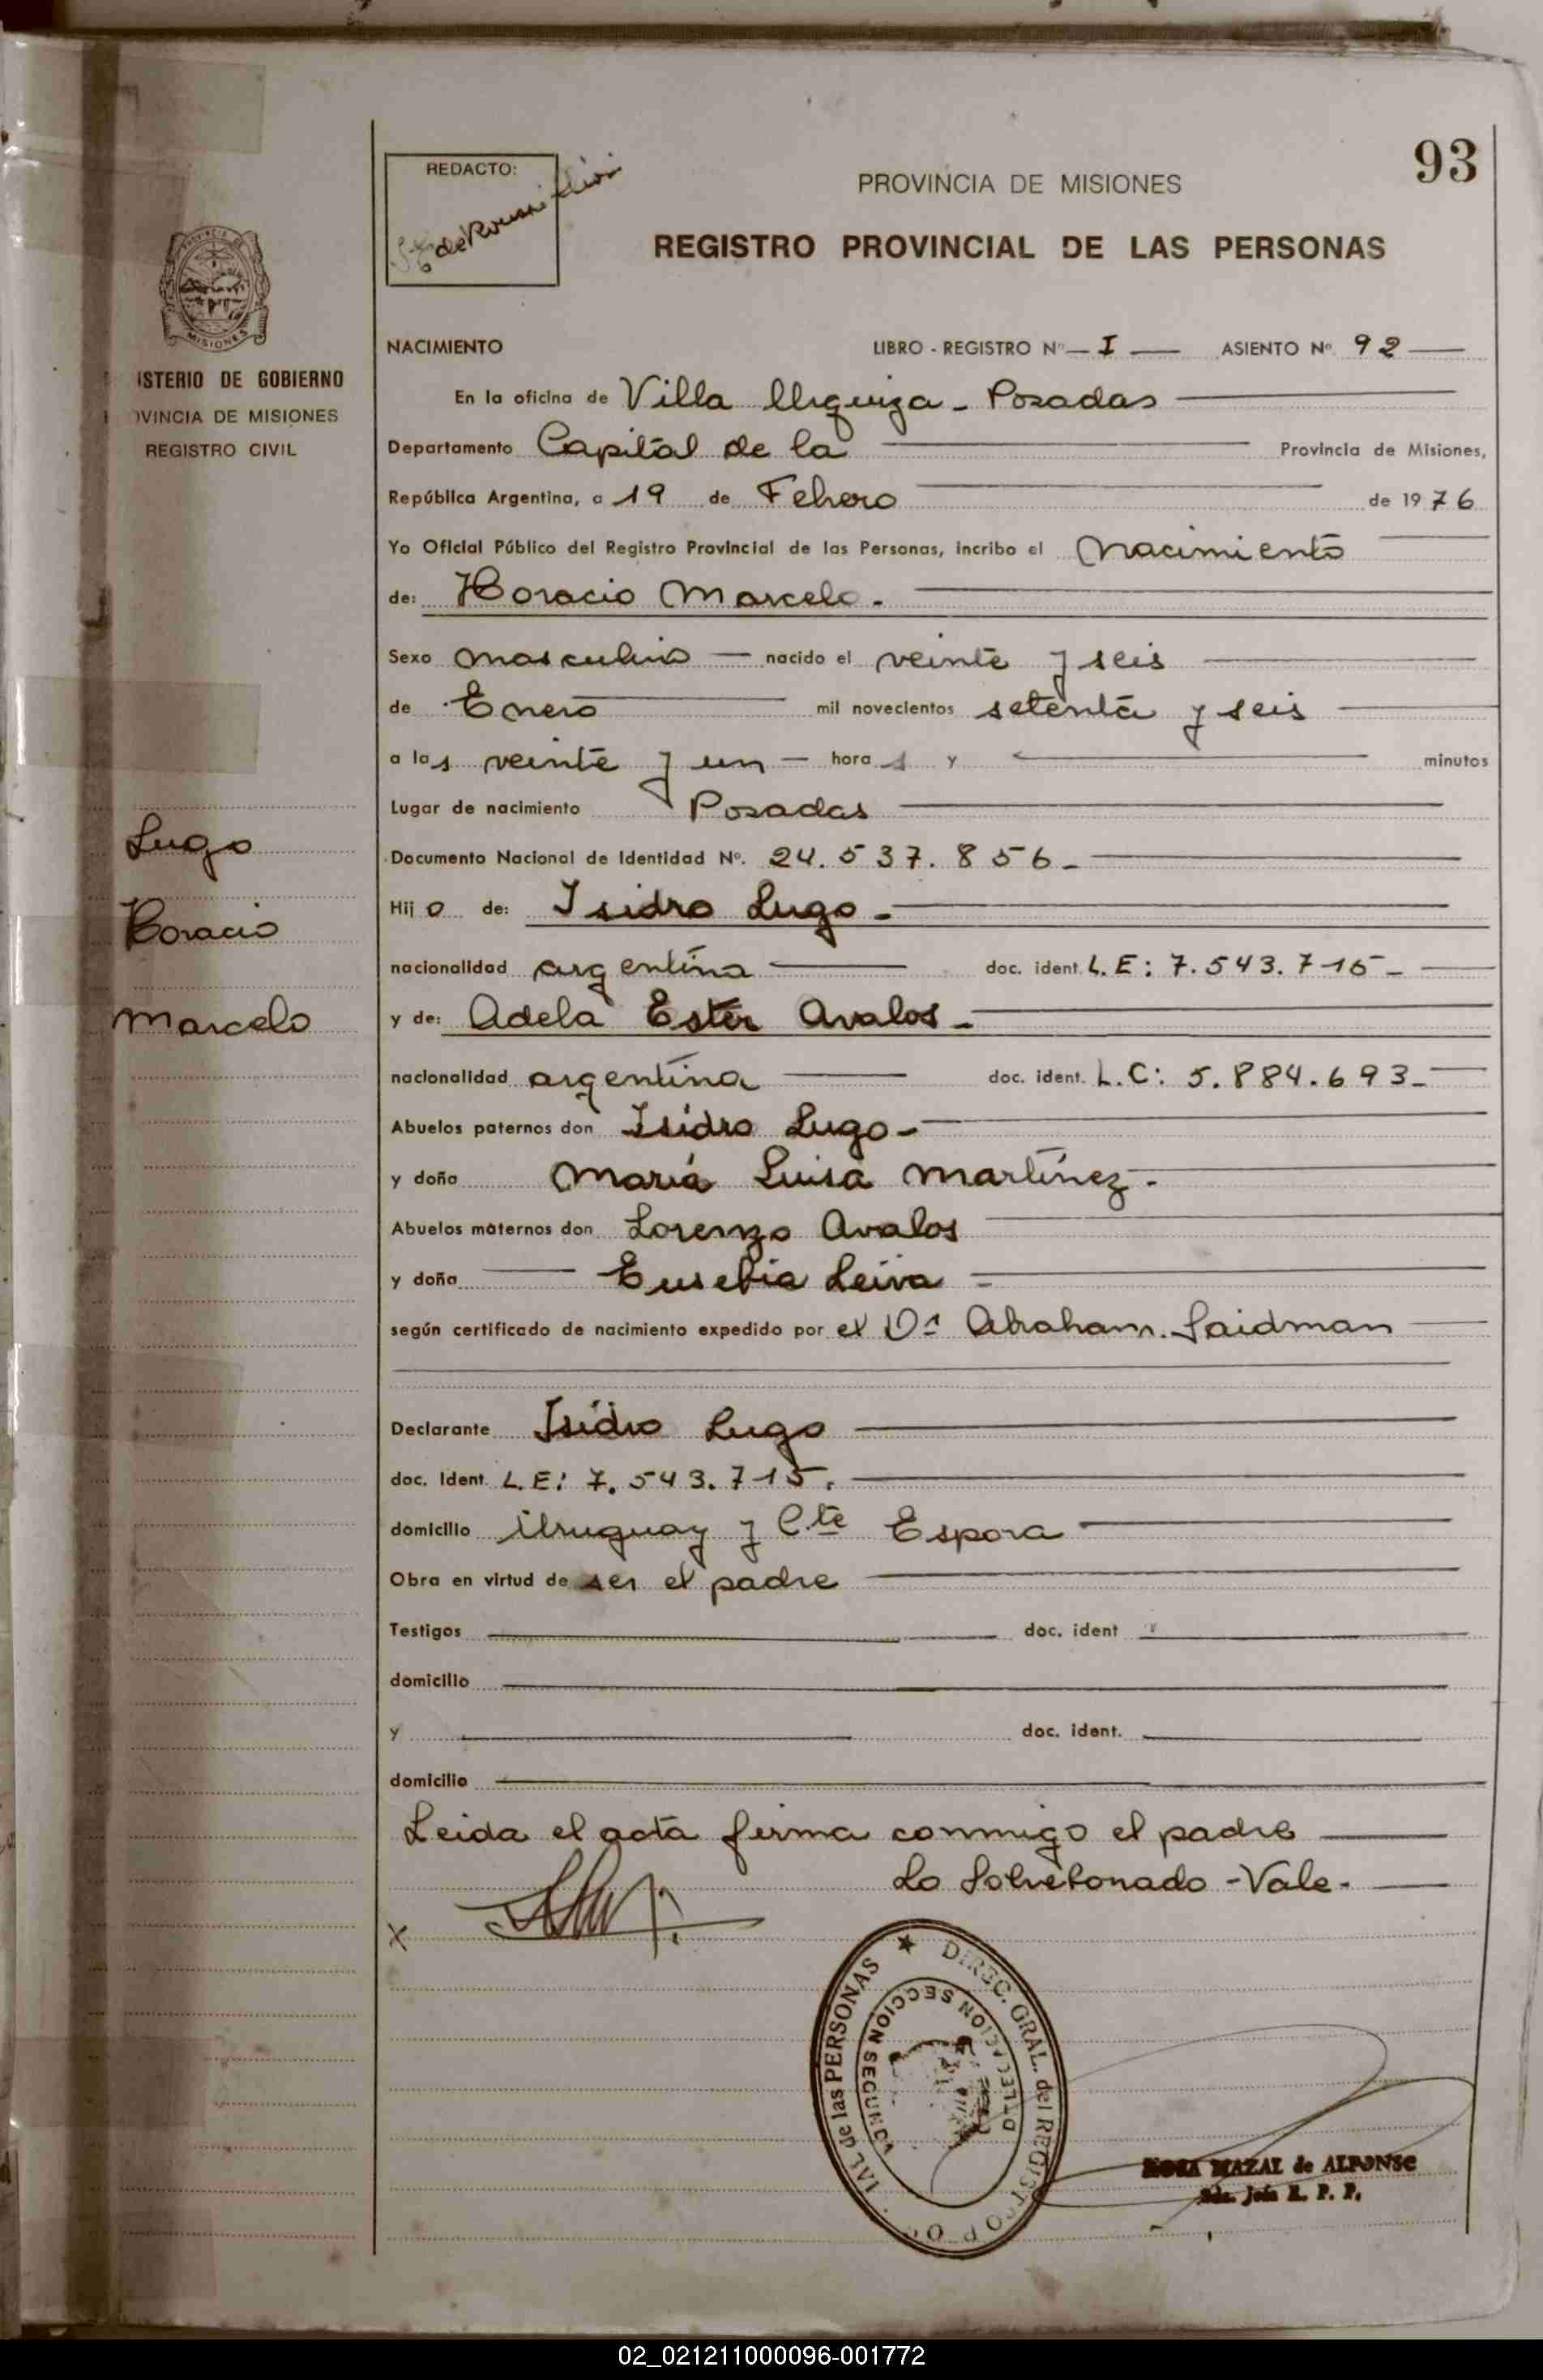 93
REDACTO:
PROVINCIA DE MISIONES
REGISTRO PROVINCIAL DE LAS PERSONAS
MISIONES
ISTERIO DE GOBIERNO
OVINCIA DE MISIONES
REGISTRO CIVIL
NACIMIENTO LIBRO - REGISTRO Nº I ASIENTO Nº 92
En la oficina de Villa Urquiza - Posadas
Departamento Capital de la Provincia de Misiones,
República Argentina, a 19 de Febrero de 1976
Yo Oficial Público del Registro Provincial de las Personas, incribo el Nacimiento
de: Horacio Marcelo.
Sexo masculino nacido el veinte y seis
de Enero mil novecientos setenta y seis
a las veinte y un hora s y minutos
Lugar de nacimiento Posadas
Documento Nacional de Identidad Nº. 24.537.856-
Hijo de: Isidro Lugo-
nacionalidad argentina doc. ident. L.E: 7.543.715-
y de: Adela Ester Avalos-
nacionalidad argentina doc. ident. L.C: 5.884.693-
Abuelos paternos don Isidro Lugo-
y doña María Luisa Martínez-
Abuelos maternos don Lorenzo Avalos
y doña Eusebia Leiva
según certificado de nacimiento expedido por el Dr Abraham. Saidman
Declarante Isidro Lugo
doc. Ident. L.E: 7.543.715.
domicilio Uruguay y Cte Espora
Obra en virtud de ser el padre
Testigos doc. ident
domicilio
y doc. ident.
domicilio
Leida el acta firma conmigo el padre
Lo Sobretonado - Vale.
X
Lugo
Horacio
Marcelo
DIREC. GRAL. del REGISTRO PROV IAL de las PERSONAS
DELEGACION SECCION SEGUNDA
ROSA MAZAL de ALFONSO
Sda. Jefa R. P. P.
02_021211000096-001772